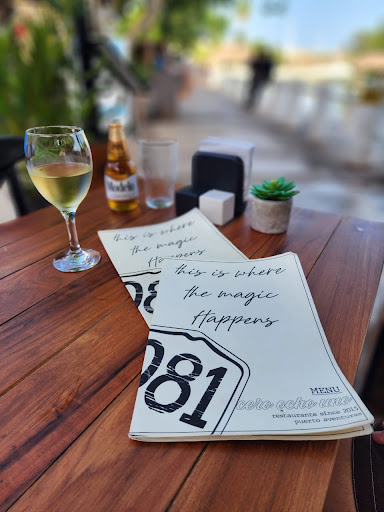 Modelo
this is where
the magic
Happens
08
this is where
the magic
Happens
081
MENU
cero ocho uno
restaurante since 2015
puerto aventuras